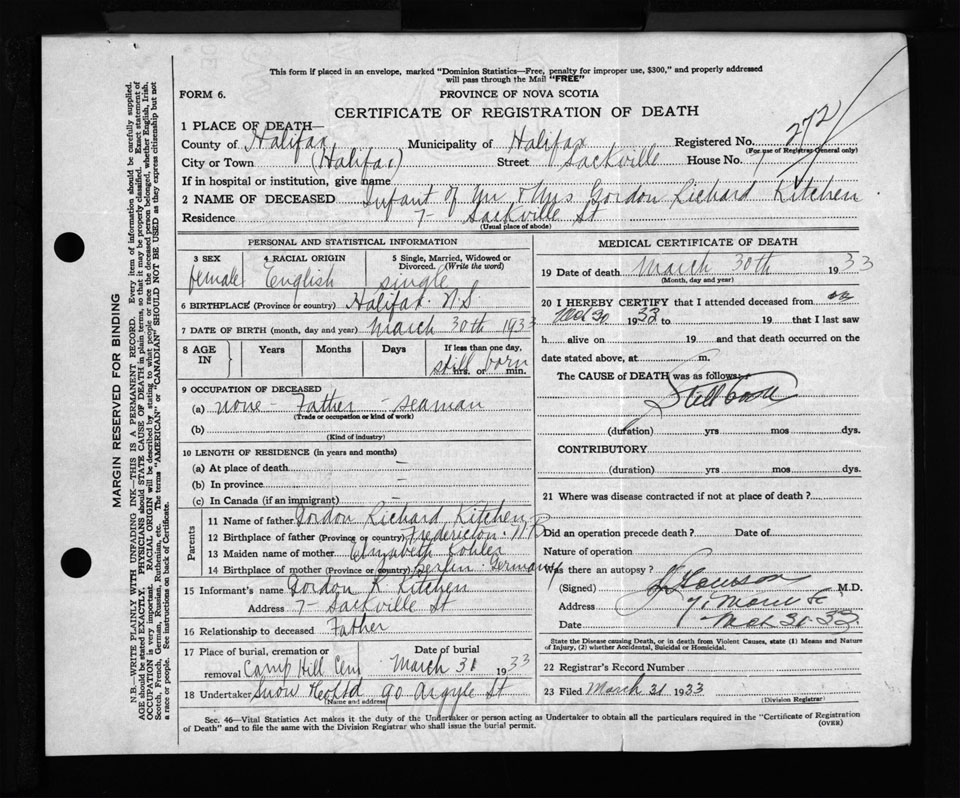 This form if placed in an envelope, marked "Dominion Statistics—Free, penalty for improper use, $300," and properly addressed
will pass through the Mail "FREE"
FORM 6.
PROVINCE OF NOVA SCOTIA
CERTIFICATE OF REGISTRATION OF DEATH
1 PLACE OF DEATH—
County of Halifax Municipality of Halifax Registered No. 272
(For use of Registrar General only)
City or Town (Halifax) Street Sackville House No. 7
If in hospital or institution, give name
2 NAME OF DECEASED Infant of Mr & Mrs Gordon Richard Kitchen
Residence 7- Sackville St
(Usual place of abode)
PERSONAL AND STATISTICAL INFORMATION
3 SEX 4 RACIAL ORIGIN 5 Single, Married, Widowed or
Divorced. (Write the word)
female English single
6 BIRTHPLACE (Province or country) Halifax. N.S.
7 DATE OF BIRTH (month, day and year) March 30th 1933
8 AGE IN Years Months Days If less than one day,
still born
hrs. or min.
9 OCCUPATION OF DECEASED
(a) none - Father - seaman
(Trade or occupation or kind of work)
(b)
(Kind of industry)
10 LENGTH OF RESIDENCE (in years and months)
(a) At place of death —
(b) In province —
(c) In Canada (if an immigrant) —
Parents
11 Name of father Gordon Richard Kitchen
12 Birthplace of father (Province or country) Fredericton. N B
13 Maiden name of mother Elizabeth Kohler
14 Birthplace of mother (Province or country) Berlin. Germany
15 Informant's name Gordon R Kitchen
Address 7- Sackville St
16 Relationship to deceased Father
17 Place of burial, cremation or removal Camp Hill Cem Date of burial March 31 1933
18 Undertaker Snow 90 Argyle St
(Name and address)
MEDICAL CERTIFICATE OF DEATH
19 Date of death March 30th 1933
(Month, day and year)
20 I HEREBY CERTIFY that I attended deceased from on
Mch 30 1933 to 19 that I last saw
h alive on 19 and that death occurred on the
date stated above, at m.
The CAUSE of DEATH was as follows:
Still born
(duration) yrs mos dys.
CONTRIBUTORY
(duration) yrs mos dys.
21 Where was disease contracted if not at place of death?
Did an operation precede death? Date of
Nature of operation
Was there an autopsy?
(Signed) M.D.
Address
Date Mch 30-33
State the Disease causing Death, or in death from Violent Causes, state (1) Means and Nature
of Injury, (2) whether Accidental, Suicidal or Homicidal.
22 Registrar's Record Number
23 Filed March 31 1933
(Division Registrar)
Sec. 46—Vital Statistics Act makes it the duty of the Undertaker or person acting as Undertaker to obtain all the particulars required in the "Certificate of Registration
of Death" and to file the same with the Division Registrar who shall issue the burial permit.
(OVER)
MARGIN RESERVED FOR BINDING
N.B.—WRITE PLAINLY WITH UNFADING INK—THIS IS A PERMANENT RECORD. Every item of information should be carefully supplied.
AGE should be stated EXACTLY. PHYSICIANS should STATE CAUSE OF DEATH in plain terms, so that it may be properly classified. Exact statement of
OCCUPATION is very important. RACIAL ORIGIN will be described by stating to what people or race the deceased person belonged, whether English, Irish,
Scotch, French, German, Russian, Ruthenian, etc. The terms "AMERICAN" or "CANADIAN" SHOULD NOT BE USED as they express citizenship but not
a race or people. See instructions on back of Certificate.